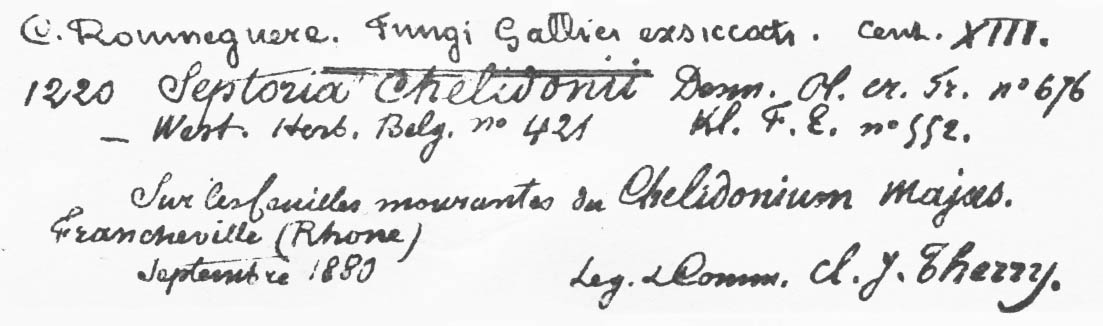 C. Roumeguere. Fungi Gallici exsiccati. Cent. XIII.
1220 Septoria Chelidonii Desm. Pl. cr. Fr. nº 676
— West. Herb. Belg. nº 421 Kl. F. E. nº 552.
Sur les feuilles mourantes du Chelidonium majus.
Francheville (Rhone)
Septembre 1880 Leg. & Comm. Cl. J. Therry.